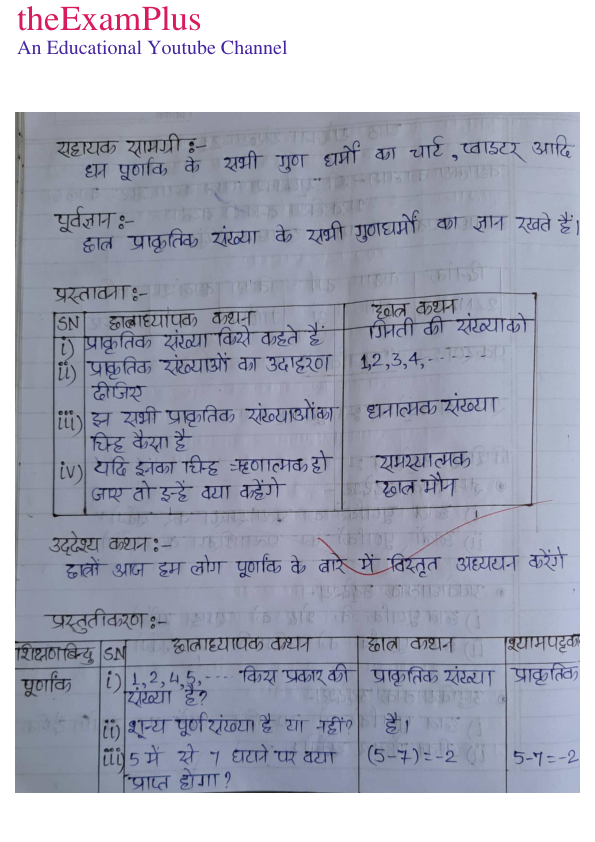 theExamPlus
An Educational Youtube Channel
सहायक सामग्री :-
धन पूर्णांक के सभी गुण धर्मों का चार्ट, प्वाइंटर आदि
पूर्वज्ञान :-
छात्र प्राकृतिक संख्या के सभी गुणधर्मों का ज्ञान रखते हैं।
प्रस्तावना :-
SN छात्राध्यापक कथन छात्र कथन
i) प्राकृतिक संख्या किसे कहते हैं गिनती की संख्या को
ii) प्राकृतिक संख्याओं का उदाहरण 1,2,3,4,.......
दीजिए
iii) इन सभी प्राकृतिक संख्याओं का धनात्मक संख्या
चिन्ह कैसा है
iv) यदि इनका चिन्ह ऋणात्मक हो समस्यात्मक
जाए तो इन्हें क्या कहेंगे छात्र मौन
उद्देश्य कथन :-
छात्रों आज हम लोग पूर्णांक के बारे में विस्तृत अध्ययन करेंगे
प्रस्तुतीकरण :-
शिक्षणबिन्दु SN छात्राध्यापक कथन छात्र कथन श्यामपट्टक
पूर्णांक i) 1,2,4,5,.... किस प्रकार की प्राकृतिक संख्या प्राकृतिक
संख्या है?
ii) शून्य पूर्ण संख्या है या नहीं? है।
iii) 5 में से 7 घटाने पर क्या (5-7)=-2 5-7=-2
प्राप्त होगा?